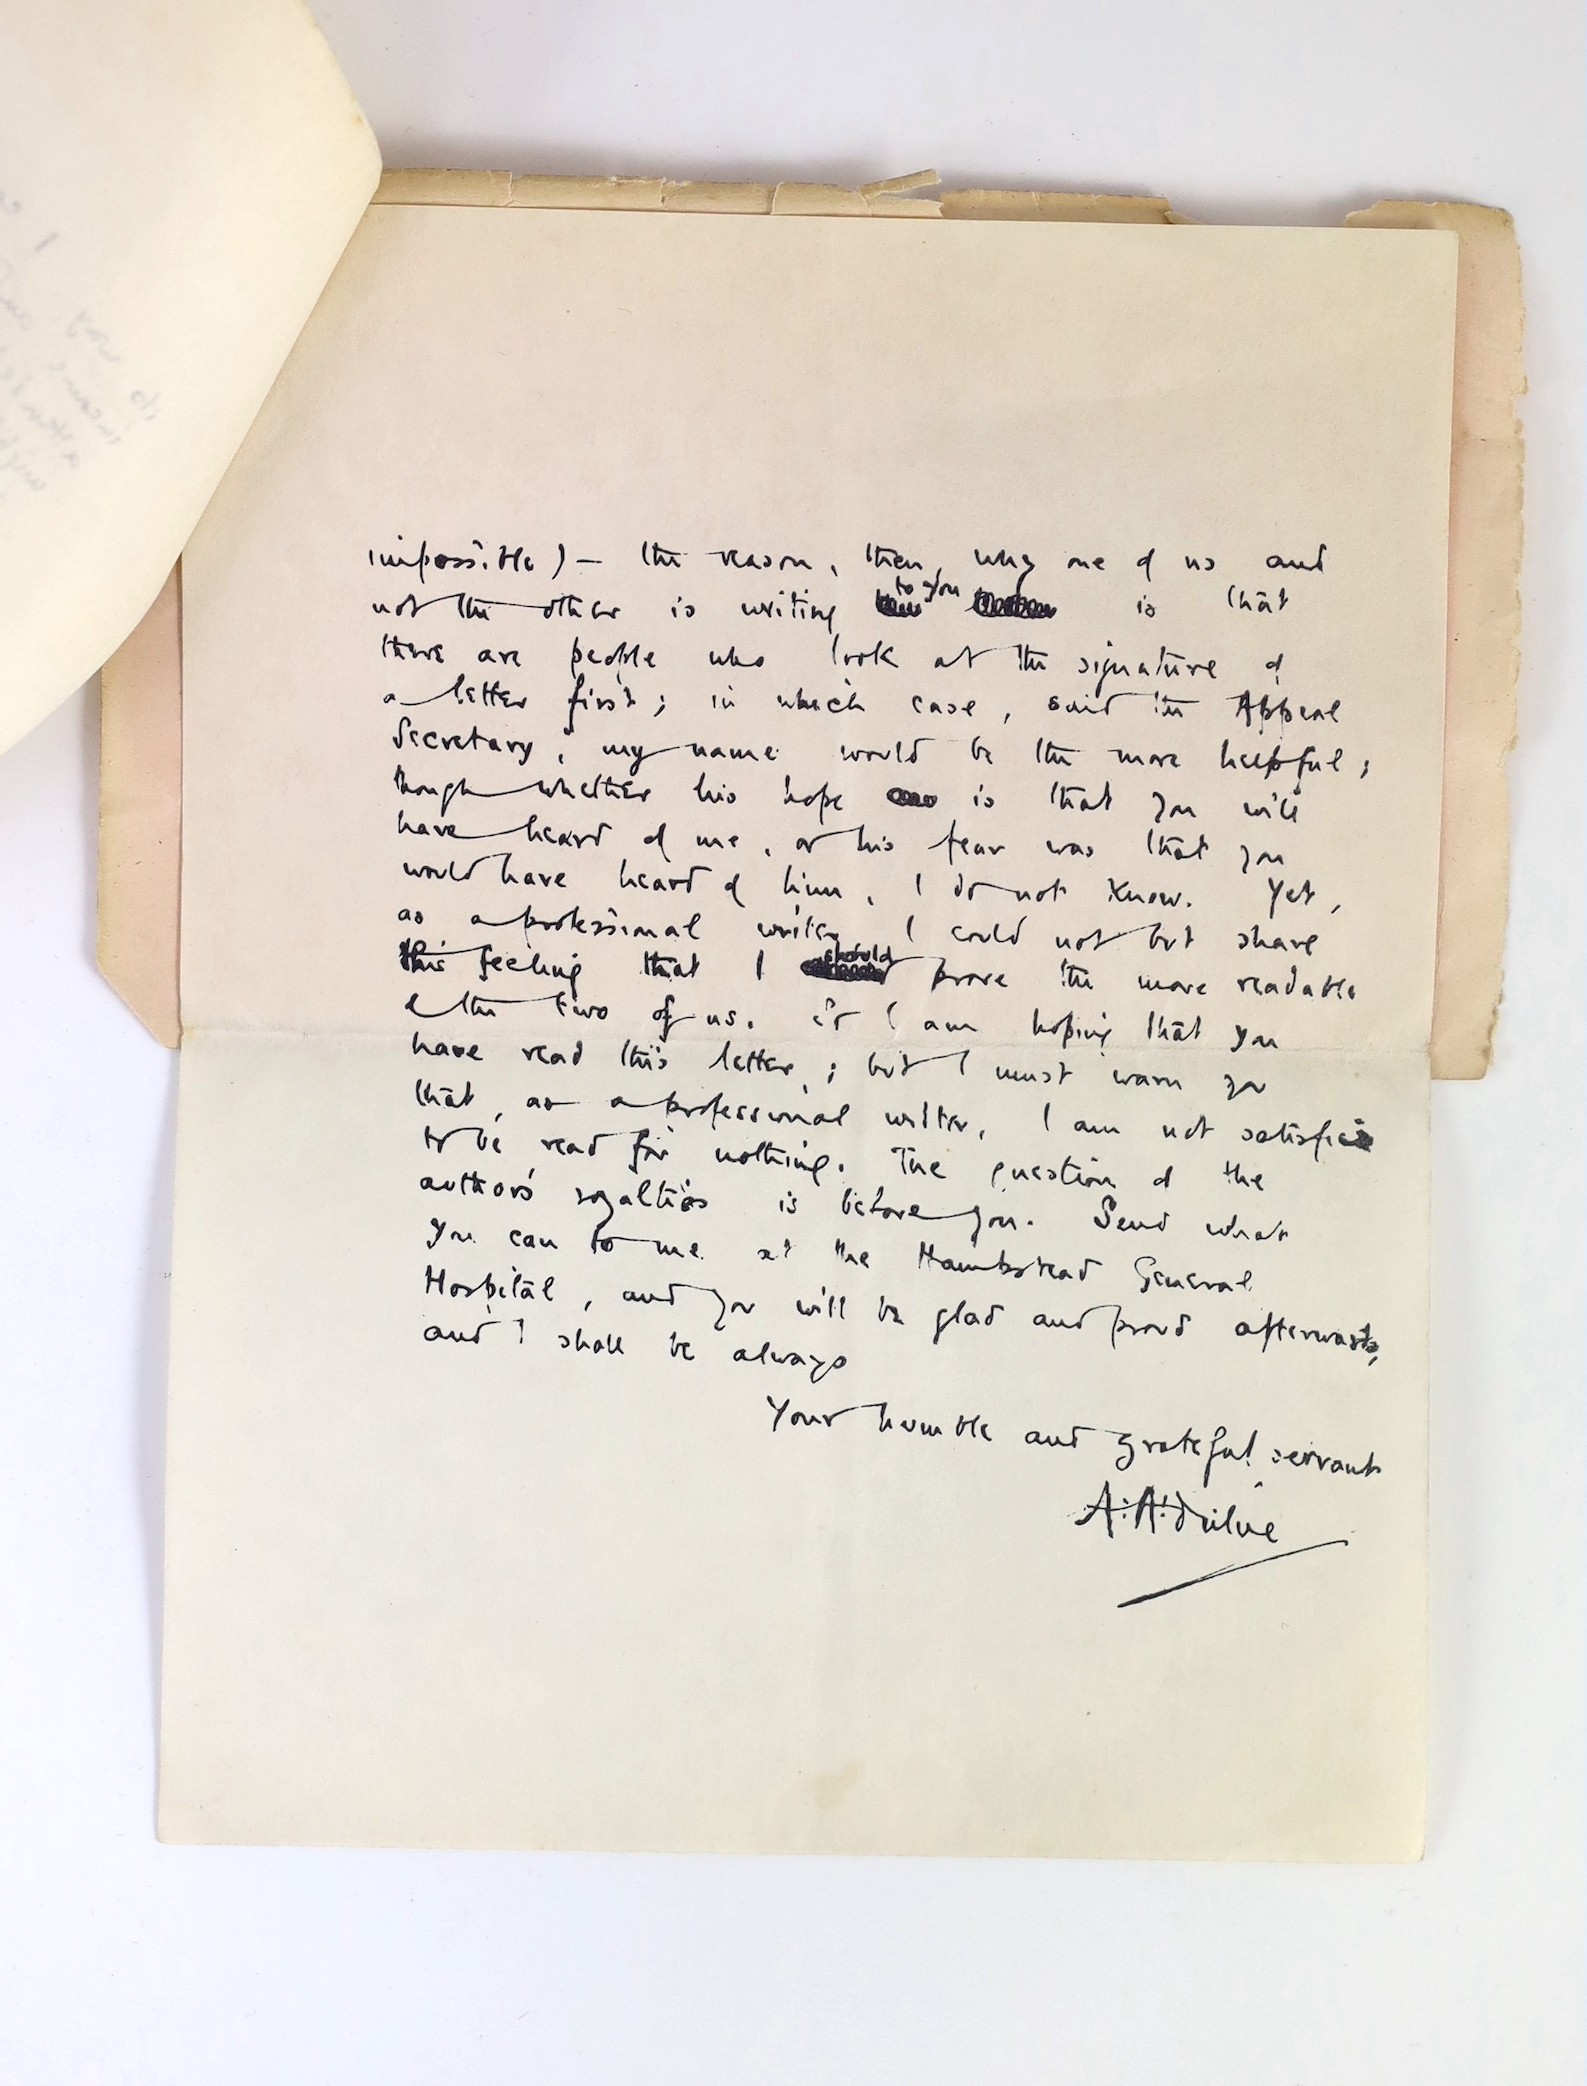 impossible) — the reason, then, why one of us and
not the other is writing to you is that
there are people who look at the signature of
a letter first; in which case, said the Appeal
Secretary, my name would be the more helpful;
though whether his hope is that you will
have heard of me, or his fear was that you
would have heard of him, I do not know. Yet,
as a professional writer, I could not but share
this feeling that I should prove the more readable
of the two of us. So I am hoping that you
have read this letter; but I must warn you
that, as a professional writer, I am not satisfied
to be read for nothing. The question of the
author's royalties is before you. Send what
you can to me at the Hampstead General
Hospital, and you will be glad and proud afterwards,
and I shall be always
Your humble and grateful servant
A. A. Milne